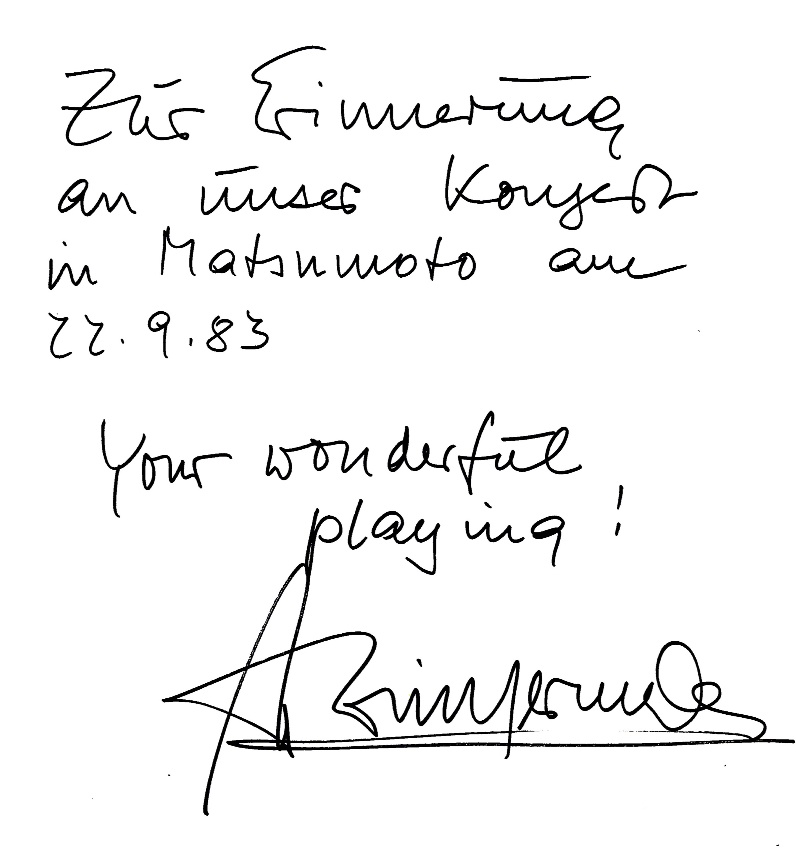 Zur Erinnerung
an unser Konzert
in Matsumoto am
22.9.83
Your wonderful
playing!